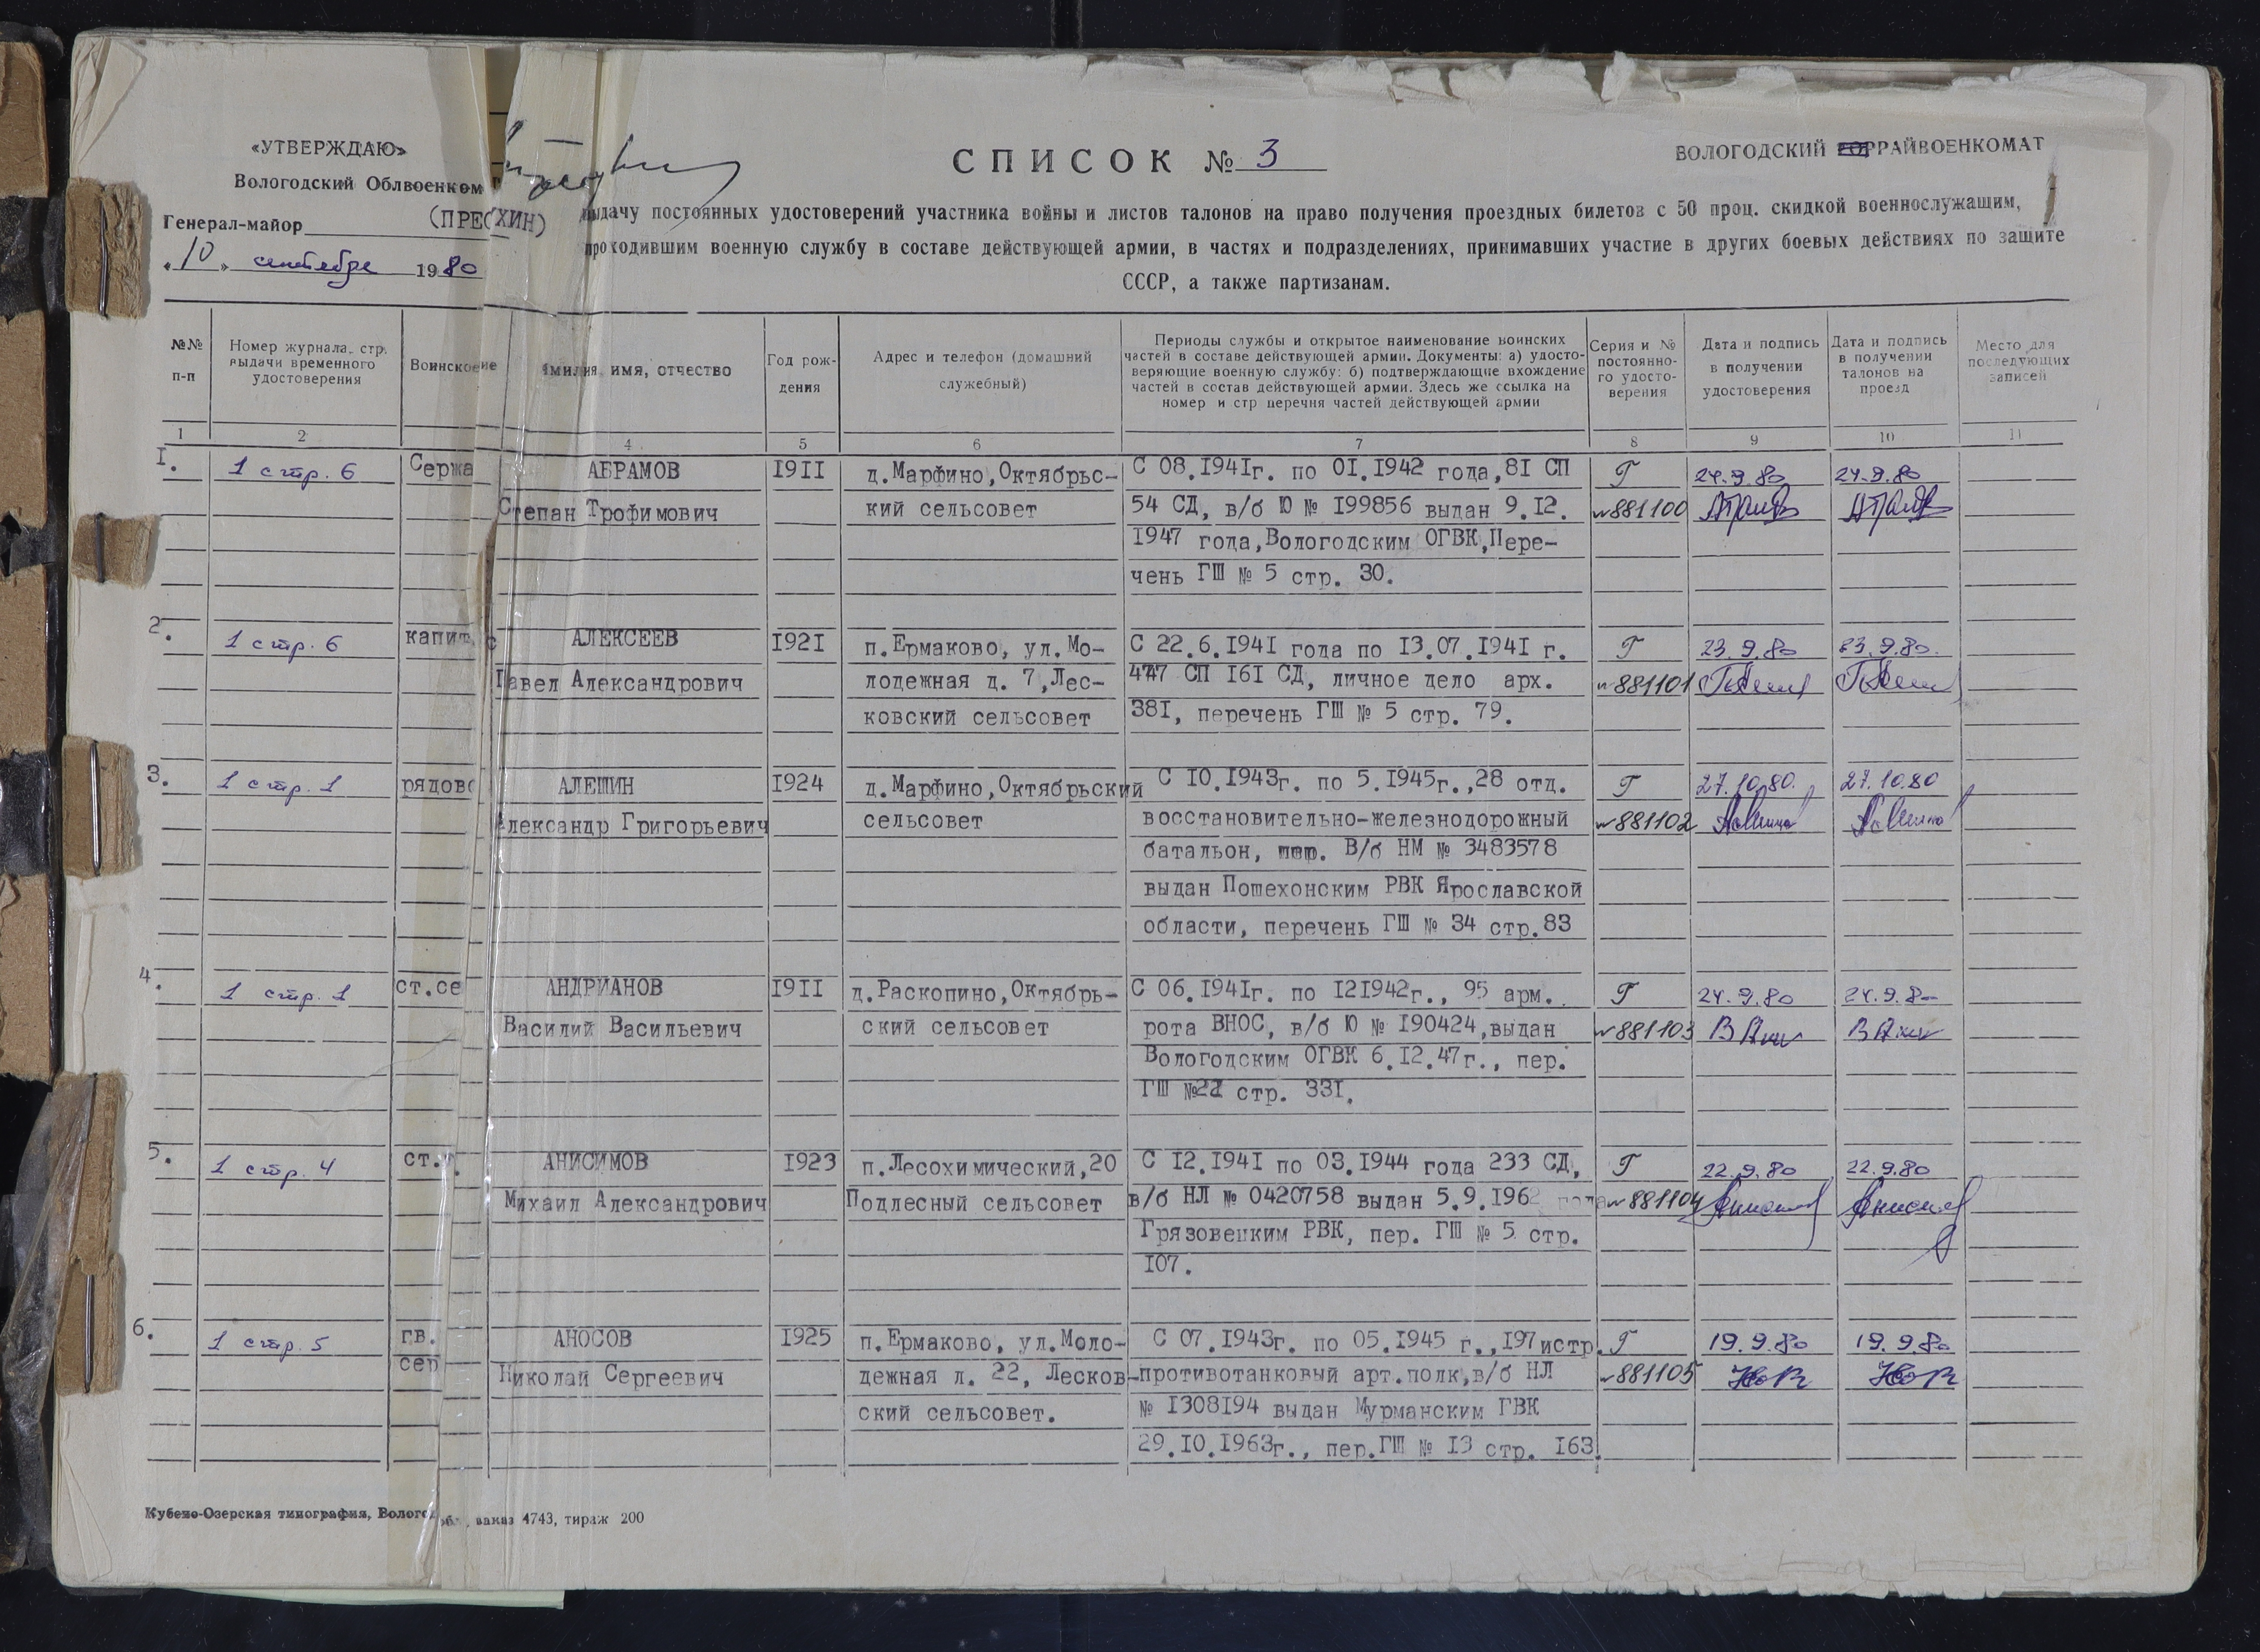 «УТВЕРЖДАЮ»
Вологодский Облвоенком
Генерал-майор (ПРЕСХИН)
«10» сентября 1980
СПИСОК № 3
ВОЛОГОДСКИЙ РАЙВОЕНКОМАТ
выдачу постоянных удостоверений участника войны и листов талонов на право получения проездных билетов с 50 проц. скидкой военнослужащим,
проходившим военную службу в составе действующей армии, в частях и подразделениях, принимавших участие в других боевых действиях по защите
СССР, а также партизанам.
№№ п-п
Номер журнала, стр. выдачи временного удостоверения
Воинское
Фамилия, имя, отчество
Год рождения
Адрес и телефон (домашний служебный)
Периоды службы и открытое наименование воинских
частей в составе действующей армии. Документы: а) удосто-
веряющие военную службу: б) подтверждающие вхождение
частей в состав действующей армии. Здесь же ссылка на
номер и стр перечня частей действующей армии
Серия и № постоянно-го удосто-верения
Дата и подпись в получении удостоверения
Дата и подпись в получении талонов на проезд
Место для последующих записей
1 2 4 5 6 7 8 9 10 11
1. 1 стр. 6 Сержа АБРАМОВ 1911 д.Марфино,Октябрьс- С 08.1941г. по 01.1942 года,81 СП Г 24.9.80 24.9.80
Степан Трофимович кий сельсовет 54 СД, в/б Ю № 199856 выдан 9.12. №881100
1947 года,Вологодским ОГВК,Пере-
чень ГШ № 5 стр. 30.
2. 1 стр. 6 капит АЛЕКСЕЕВ 1921 п.Ермаково, ул.Мо- С 22.6.1941 года по 13.07.1941 г. Г 23.9.80 23.9.80.
Павел Александрович лодежная д. 7,Лес- 447 СП 161 СД, личное дело арх. №881101
ковский сельсовет 381, перечень ГШ № 5 стр. 79.
3. 1 стр. 1 рядово АЛЕШИН 1924 д.Марфино,Октябрьский С 10.1943г. по 5.1945г.,28 отд. Г 27.10.80. 27.10.80
Александр Григорьевич сельсовет восстановительно-железнодорожный №881102
батальон, В/б НМ № 3483578
выдан Пошехонским РВК Ярославской
области, перечень ГШ № 34 стр.83
4. 1 стр. 1 ст.се АНДРИАНОВ 1911 д.Раскопино,Октябрь- С 06.1941г. по 121942г., 95 арм. Г 24.9.80 24.9.80
Василий Васильевич ский сельсовет рота ВНОС, в/б Ю № 190424,выдан №881103
Вологодским ОГВК 6.12.47г., пер.
ГШ №22 стр. 331.
5. 1 стр. 4 ст. АНИСИМОВ 1923 п.Лесохимический,20 С 12.1941 по 03.1944 года 233 СД, Г 22.9.80 22.9.80
Михаил Александрович Подлесный сельсовет в/б НЛ № 0420758 выдан 5.9.1962 года №881104
Грязовецким РВК, пер. ГШ № 5 стр.
107.
6. 1 стр. 5 гв. АНОСОВ 1925 п.Ермаково, ул.Моло- С 07.1943г. по 05.1945 г.,197истр. Г 19.9.80 19.9.80
сер Николай Сергеевич дежная д. 22, Лесков- противотанковый арт.полк,в/б НЛ №881105
ский сельсовет. № 1308194 выдан Мурманским ГВК
29.10.1963г., пер.ГШ № 13 стр. 163.
Кубено-Озерская типография, Волого обл., заказ 4743, тираж 200